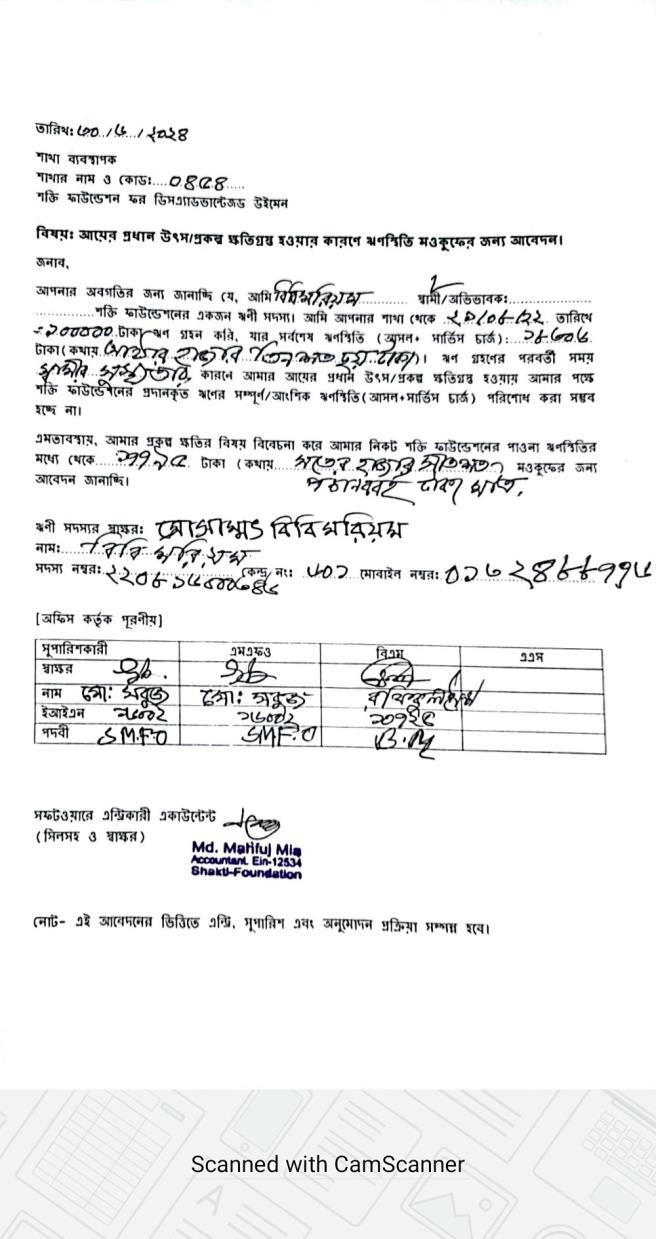 তারিখ: ৩০/৬/২০২৪
শাখা ব্যবস্থাপক
শাখার নাম ও কোডঃ....০৪৫৪.....
শক্তি ফাউন্ডেশন ফর ডিসএ্যাডভান্টেজড উইমেন
বিষয়ঃ আয়ের প্রধান উৎস/প্রকল্প ক্ষতিগ্রস্থ হওয়ার কারণে ঋণস্থিতি মওকুফের জন্য আবেদন।
জনাব,
আপনার অবগতির জন্য জানাচ্ছি যে, আমি বিবি মরিয়ম ............ স্বামী/অভিভাবক:..................
..............শক্তি ফাউন্ডেশনের একজন ঋনী সদস্য। আমি আপনার শাখা থেকে তারিখে
টাকা ঋণ গ্রহন করি, যার সর্বশেষ ঋণস্থিতি (আসল+ সার্ভিস চার্জ):
টাকা(কথায় হাজার তিনশত ছয় টাকা)। ঋণ গ্রহণের পরবর্তী সময়
কারনে আমার আয়ের প্রধান উৎস/প্রকল্প ক্ষতিগ্রস্থ হওয়ায় আমার পক্ষে
শক্তি ফাউন্ডেশনের প্রদানকৃত ঋণের সম্পূর্ণ/আংশিক ঋণস্থিতি(আসল+সার্ভিস চার্জ) পরিশোধ করা সম্ভব
হচ্ছে না।
এমতাবস্থায়, আমার প্রকৃত ক্ষতির বিষয় বিবেচনা করে আমার নিকট শক্তি ফাউন্ডেশনের পাওনা ঋণস্থিতির
মধ্যে থেকে.... ১৭৭৯৫ টাকা (কথায়.... সতের হাজার সাতশত মওকুফের জন্য
আবেদন জানাচ্ছি। পচানব্বই টাকা মাত্র,
ঋনী সদস্যর স্বাক্ষর: মোসাম্মাৎ বিবি মরিয়ম
নাম: বিবি মরিয়ম
সদস্য নম্বর: কেন্দ্র নং: ৬০১ মোবাইল নম্বর:
[অফিস কর্তৃক পূরণীয়]
সুপারিশকারী এমএফও বিএম এএস
স্বাক্ষর
নাম মো: সবুজ মো: সবুজ
ইআইএন ১৬০০২ ১৬০০২ ২০৭২৫
পদবী S.M.F.O SMF.O B.M
সফটওয়ারে এন্ট্রিকারী একাউন্টেন্ট
(সিলসহ ও স্বাক্ষর)
Md. Mafiful Mia
Accountant. Ein-12534
Shakti-Foundation
নোট- এই আবেদনের ভিত্তিতে এন্ট্রি, সুপারিশ এবং অনুমোদন প্রক্রিয়া সম্পন্ন হবে।
Scanned with CamScanner